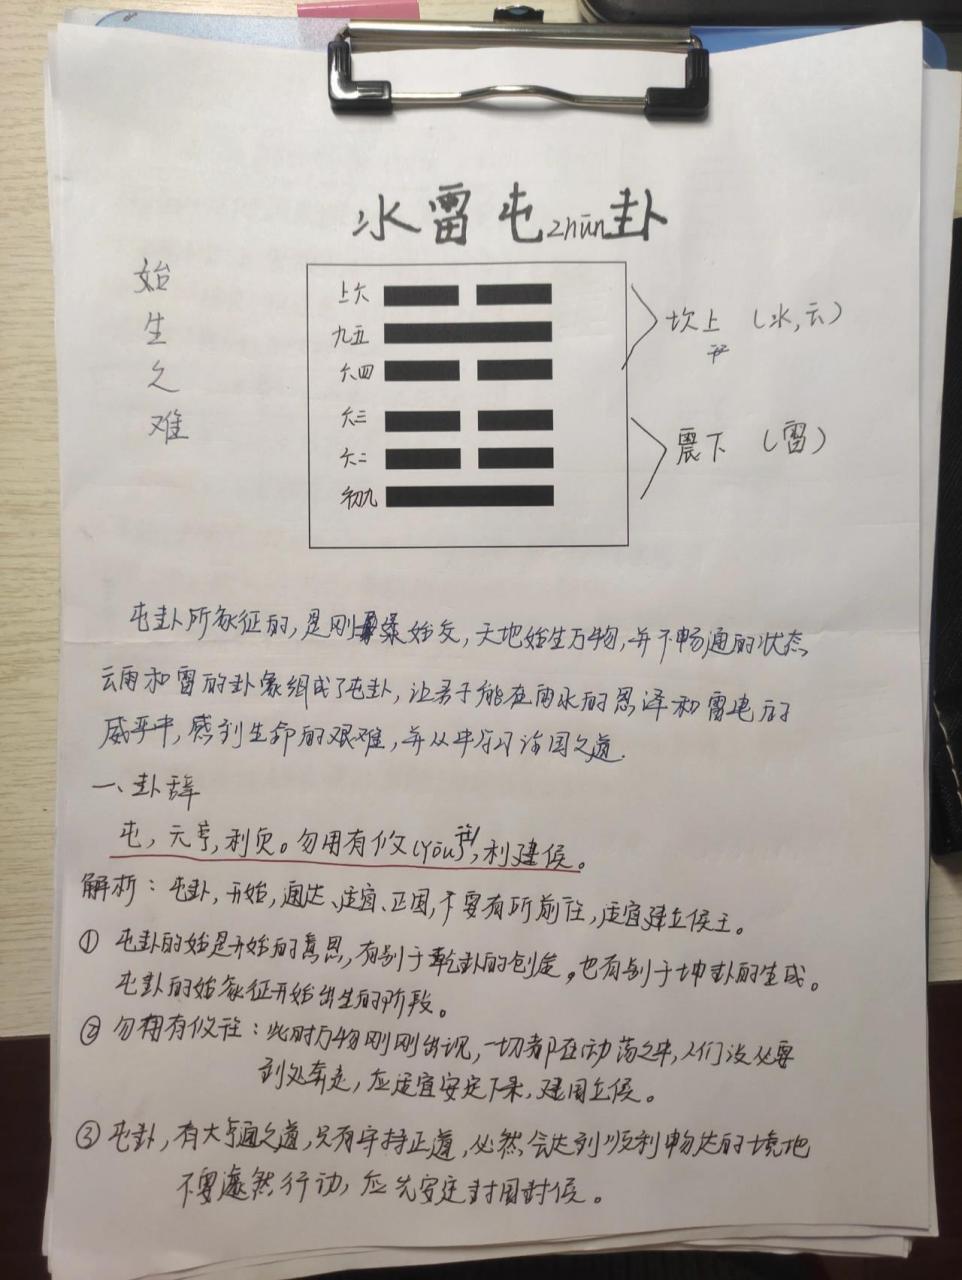 水雷屯zhūn卦
始
生
之
难
上六
九五
六四
六三
六二
初九
坎上 (水,云)
平
震下 (雷)
屯卦所象征的,是刚柔始交,天地始生万物,并不畅通的状态
云雨和雷的卦象组成了屯卦,让君子能在雨水的恩泽和雷电的
威严中,感到生命的艰难,并从中学习治国之道.
一、卦辞
屯,元亨,利贞。勿用有攸(yōu)往,利建侯。
解析:屯卦,开始,通达、适宜、正固,不要有所前往,适宜建立侯王。
① 屯卦的始是开始的意思,有别于乾卦的创造。也有别于坤卦的生成。
屯卦的始象征开始出生的阶段。
② 勿用有攸往:此时万物刚刚出现,一切都在动荡之中,人们没必要
到处奔走,应适宜安定下来,建国立侯。
③ 屯卦,有大亨通之道,只有牢持正道,必然会达到顺利畅达的境地
不要遽然行动,应先安定封国封侯。